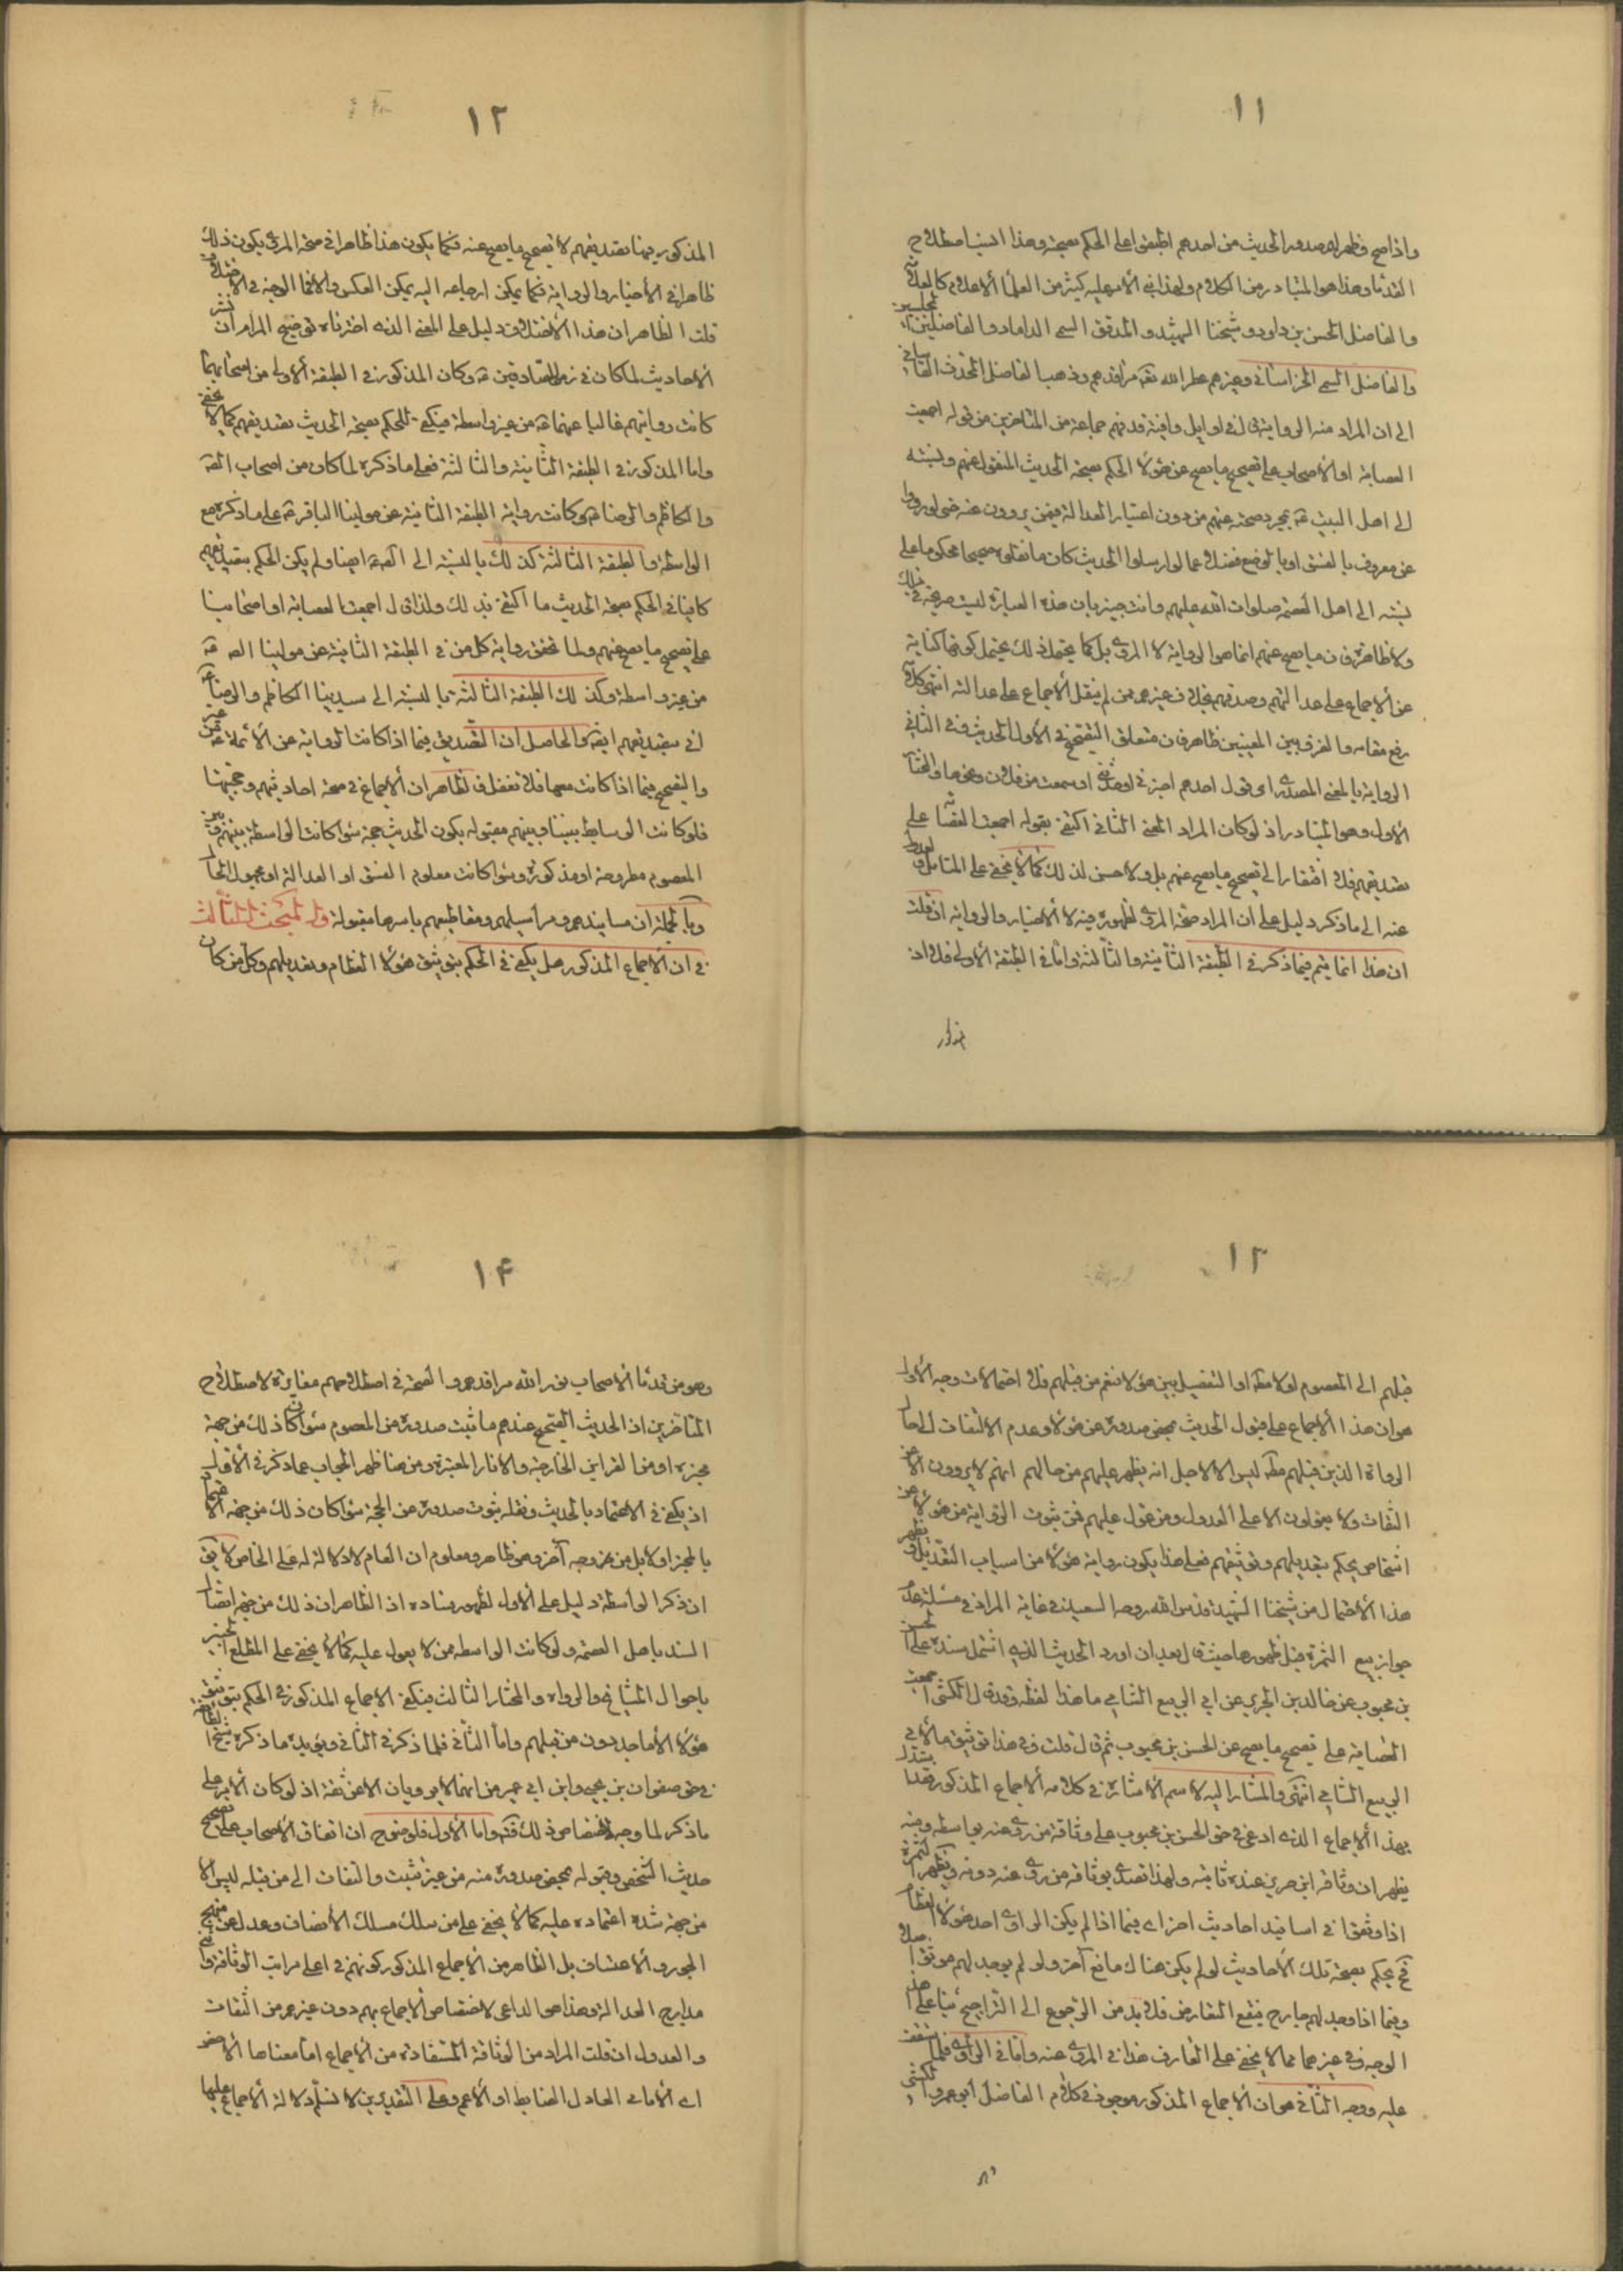 ١١
واذا صح وظهر له صدور الحديث من احدهم اطبقوا على الحكم بصحته وهذا ايضا اصطلاح
القدما وهذا هو المتبادر من الكلام ولهذا في الامر عليه كثير من العلما الاعلام كالعلامة
والفاضل الحسن بن داود وشيخنا الشهيد والمدقق السمي الداماد والفاضلين المجلسيين
والفاضل السمي الخراساني وغيرهم عطر الله تعه مراقدهم وذهب الفاضل المحدث القاساني
الى ان المراد منه الرواية قال في اوايل وافيه قد فهم جماعة من المتاخرين من قوله اجمعت
العصابة او الاصحاب على تصحيح ما يصح عن هؤلاء الحكم بصحة الحديث المنقول عنهم ونسبته
الى اهل البيت عه بمجرد صحته عنهم من دون اعتبار العدالة فيمن يروون عنه حتى لو رووا
عن معروف بالفسق او بالوضع فضلا عما لو ارسلوا الحديث كان ما نقلوه صحيحا محكوما على
نسبته الى اهل العصمة صلوات الله عليهم وانت خبير بان هذه العبارة ليست صريحة في ذلك
ولا ظاهرة فان ما يصح عنهم انما هو الرواية لا المروي بل كما يحتمل ذلك يحتمل كونها كناية
عن الاجماع على عدالتهم وصدقهم بخلاف غيرهم ممن لم ينقل الاجماع على عدالته انتهى كلامه
رفع مقامه والفرق بين المعنيين ظاهر فان متعلق التصحيح في الاول الحديث وفي الثاني
الرواية بالمعنى المصدري اي قول احدهم اخبرني او حدثني او سمعت من فلان ونحوها والمختار
الاول وهو المتبادر اذ لو كان المراد المعنى الثاني اكتفى بقوله اجمعت العصابة على
تصديقهم فلا افتقار الى تصحيح ما يصح عنهم بل ولا حسن لذلك كما لا يخفى على المتامل والعدول
عنه الى ما ذكر دليل على ان المراد صحة المروي لظهوره فيه لا الاخبار والرواية ان قلت
ان هذا انما يتم فيما ذكر في الطبقة الثانية والثالثة واما في الطبقة الاولى فلا اذ
١٢
المذكور فيها تصديقهم لا تصحيح ما يصح عنه فكما يكون هذا ظاهرا في صحة المروي يكون ذلك
ظاهرا في الاخبار والرواية فكما يمكن ارجاعه اليه يمكن العكس والا فما الوجه في الاختلاف
قلت الظاهر ان هذا الاختلاف دليل على المعنى الذي اخترناه توضيح المرام ان نشر
الاحاديث لما كان في زمن الصادقين عه وكان المذكور في الطبقة الاولى من اصحابهما
كانت روايتهم غالبا عنهما عه من غير واسطة فيكفي للحكم بصحة الحديث تصديقهم كما لا يخفى
واما المذكور في الطبقة الثانية والثالثة فعلى ما ذكره لما كان من اصحاب الصه
والكاظم والرضا عه وكانت رواية الطبقة الثانية عن مولينا الباقر عه على ما ذكره مع
الواسطة والطبقة الثالثة كذلك بالنسبة الى الصه ايضا ولم يكن الحكم بتصديقهم
كافيا في الحكم بصحة الحديث ما اكتفى بذلك ولذا قال اجمعت العصابة او اصحابنا
على تصحيح ما يصح عنهم ولما تحقق رواية كل من في الطبقة الثانية عن مولينا الصه عه
من غير واسطة وكذلك الطبقة الثالثة بالنسبة الى سيدينا الكاظم والرضا عه
اتى بتصديقهم ايضه والحاصل ان التصديق فيما اذا كانت الرواية عن الائمة عه من غير
والتصحيح فيما اذا كانت معها فلا تغفل فالظاهر ان الاجماع في صحة احاديثهم وحجيتها
فلو كانت الوسايط بيننا وبينهم مقبولة يكون الحديث حجة سواء كانت الواسطة بينهم وبين
المعصوم مطروحة او مذكورة وسواء كانت معلوم الفسق او العدالة او مجهول الحال
وبالجملة ان مسانيدهم ومراسيلهم ومقاطيعهم باسرها مقبولة والمبحث الثالث
في ان الاجماع المذكور هل يكفي في الحكم بتوثيق هؤلاء العظام وتعديلهم وكل من كان
١٣
قبلهم الى المعصوم او لا مطه او التفصيل بين هؤلاء فنعم من قبلهم فلا احتمالات وجه الاول
هو ان هذا الاجماع على قبول الحديث بمحض صدوره عن هؤلاء وعدم الالتفات الى حال
الرواة الذين قبلهم مطه ليس الا لاجل انه يظهر عليهم من حالهم انهم لا يروون الا عن
الثقات ولا يعولون الا على العدول ومن عول عليهم فمن ثبوت الرواية من هؤلاء عن
اشخاص يحكم بتعديلهم وتوثيقهم فعلى هذا يكون رواية هؤلاء من اسباب التعديل ويظهر
هذا الاحتمال من شيخنا الشهيد قدس الله روحه السعيد في غاية المراد في مسئلة عدم
جواز بيع الثمرة قبل ظهورها حيث قال بعد ان اورد الحديث الذي اشتمل سنده على الحسن
بن محبوب عن خالد بن الجرير عن ابي الربيع الشامي ما هذا لفظه وقد قال الكشي اجمعت
العصابة على تصحيح ما يصح عن الحسن بن محبوب ثم قال قلت وفي هذا توثيق ما لابي
الربيع الشامي انتهى والمشار اليه لاسم الاشارة في كلامه الاجماع المذكور فقد استدل
بهذا الاجماع الذي ادعي في حق الحسن بن محبوب على وثاقة من روى عنه بواسطة ومنه
يظهر ان وثاقة ابن جرير عنده ثابته ولهذا تصدى بوثاقة من روى عنه دونه ويظهر الثمرة
اذا وثقوا في اسانيد احاديث اخر اي فيما اذا لم يكن الراوي احد هؤلاء العظام
فح يحكم بصحة تلك الاحاديث لو لم يكن هناك مانع آخر ولو لم يوجد لهم موثق اصلا
وفيما اذا وجد لهم جارح فيقع التعارض فلا بد من الرجوع الى التراجيح بناء على هذا
الوجه وفي غيرها مما لا يخفى على العارف هذا في المروي عنه واما في الراوي فلما ستقف
عليه ووجه الثاني هو ان الاجماع المذكور موجود في كلام الفاضل ابو عمرو الكشي
١۴
وهو من قدماء الاصحاب نور الله مراقدهم والصحة في اصطلاحهم مغايرة لاصطلاح
المتاخرين اذ الحديث الصحيح عندهم ما ثبت صدوره من المعصوم سواء كان ذلك من جهة
مخبره او من القراين الخارجية والاثار المعتبرة ومن هنا ظهر الجواب عما ذكر في الاول
اذ يكفي في الاعتماد بالحديث ونقله ثبوت صدوره عن الحجة سواء كان ذلك من جهة الاعتماد
بالمخبر او لا بل من وجه آخر وهو ظاهر ومعلوم ان العام لا دلالة له على الخاص لا يق
ان ذكر الواسطة دليل على الاول لظهور فساده اذ الظاهر ان ذلك من جهة اتصال
السند باهل العصمة ولو كانت الواسطة ممن لا يعول عليه كما لا يخفى على المطلع الخبير
باحوال المشايخ والرواه والمختار الثالث فيكفي الاجماع المذكور في الحكم بتوثيق
هؤلاء الاماجد دون من قبلهم واما الثاني فلما ذكر في الثاني ويؤيده ما ذكره شيخ الطائفة
في حق صفوان بن يحيى وابن ابي عمير من انهما لا يرويان الا عن ثقة اذ لو كان الامر على
ما ذكر لما وجه اختصاص ذلك فتد واما الاول فلوضوح ان اتفاق الاصحاب على تصحيح
حديث الشخص وقبوله بمحض صدوره منه من غير تثبت والتفات الى من قبله ليس الا
من جهة شدة اعتماده عليه كما لا يخفى على من سلك مسلك الانصاف وعدل عن منهج
الجور والاعتساف بل الظاهر من الاجماع المذكور كونهم في اعلى مراتب الوثاقة و
مدارج العدالة وهذا هو الداعي لاختصاص الاجماع بهم دون غيرهم من الثقات
والعدول ان قلت المراد من الوثاقة المستفادة من الاجماع اما معناها الاخص
اي الامامي العادل الضابط او الاعم وعلى التقديرين لا نسلم دلالة الاجماع عليها